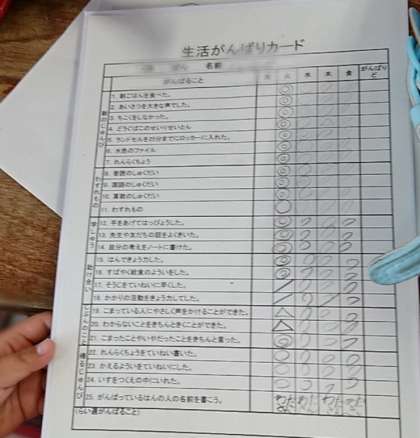 生活がんばりカード
名前
がんばること
月 火 水 木 金 がんばりど
1. 朝ごはんを食べた。
2. あいさつを大きな声でした。
3. ちこくをしなかった。
4. どうぐばこのせいりせいとん
6. 水色のファイル
7. れんらくちょう
8. 音読のしゅくだい
9. 国語のしゅくだい
10. 算数のしゅくだい
11. わすれもの
12. 手をあげてはっぴょうした。
13. 先生や友だちの話をよくきいた。
14. 自分の考えをノートに書けた。
15. はんできょう力した。
16. すばやく給食のよういをした。
17. そうじをていねいに早くした。
18. かかりの活動をきょう力してした。
19. こまっている人にやさしく声をかけることができた。
20. わからないことをきちんときくことができた。
21. こまったことやいやだったことをきちんと言った。
22. れんらくちょうをていねい書いた。
23. かえるよういをていねいにした。
24. いすをつくえの中にいれた。
25. がんばっているはんの人の名前を書こう。